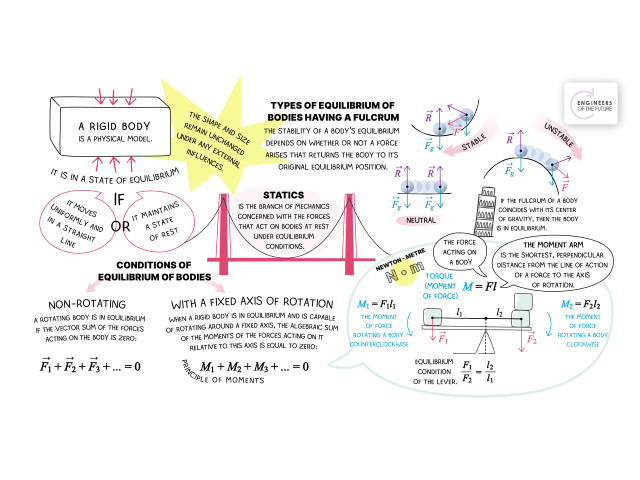 ENGINEERS
OF THE FUTURE
A RIGID BODY
IS A PHYSICAL MODEL.
THE SHAPE AND SIZE
REMAIN UNCHANGED
UNDER ANY EXTERNAL
INFLUENCES.
IT IS IN A STATE OF EQUILIBRIUM
IF
IT MOVES
UNIFORMLY AND
IN A STRAIGHT
LINE
OR
IT MAINTAINS
A STATE
OF REST
TYPES OF EQUILIBRIUM OF
BODIES HAVING A FULCRUM
THE STABILITY OF A BODY'S EQUILIBRIUM
DEPENDS ON WHETHER OR NOT A FORCE
ARISES THAT RETURNS THE BODY TO ITS
ORIGINAL EQUILIBRIUM POSITION.
R⃗
F⃗
F⃗g
STABLE
R⃗ R⃗
F⃗g F⃗g
NEUTRAL
UNSTABLE
R⃗
F⃗g
F⃗
IF THE FULCRUM OF A BODY
COINCIDES WITH ITS CENTER
OF GRAVITY, THEN THE BODY
IS IN EQUILIBRIUM.
STATICS
IS THE BRANCH OF MECHANICS
CONCERNED WITH THE FORCES
THAT ACT ON BODIES AT REST
UNDER EQUILIBRIUM
CONDITIONS.
CONDITIONS OF
EQUILIBRIUM OF BODIES
NON-ROTATING
A ROTATING BODY IS IN EQUILIBRIUM
IF THE VECTOR SUM OF THE FORCES
ACTING ON THE BODY IS ZERO:
F⃗₁ + F⃗₂ + F⃗₃ + ... = 0
WITH A FIXED AXIS OF ROTATION
WHEN A RIGID BODY IS IN EQUILIBRIUM AND IS CAPABLE
OF ROTATING AROUND A FIXED AXIS, THE ALGEBRAIC SUM
OF THE MOMENTS OF THE FORCES ACTING ON IT
RELATIVE TO THIS AXIS IS EQUAL TO ZERO:
M₁ + M₂ + M₃ + ... = 0
PRINCIPLE OF MOMENTS
NEWTON - METRE
N·m
THE FORCE
ACTING ON
A BODY
THE MOMENT ARM
IS THE SHORTEST, PERPENDICULAR
DISTANCE FROM THE LINE OF ACTION
OF A FORCE TO THE AXIS
OF ROTATION.
TORQUE
(MOMENT
OF FORCE)
M = Fl
M₁ = F₁l₁
THE MOMENT
OF FORCE
ROTATING A BODY
COUNTERCLOCKWISE
l₁ l₂
F⃗₁ F⃗₂
M₂ = F₂l₂
THE MOMENT
OF FORCE
ROTATING A BODY
CLOCKWISE
EQUILIBRIUM
CONDITION
OF THE LEVER.
F₁/F₂ = l₂/l₁